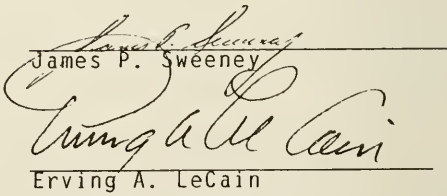 James P. Sweeney
James P. Sweeney
Erving A Le Cain
Erving A. LeCain